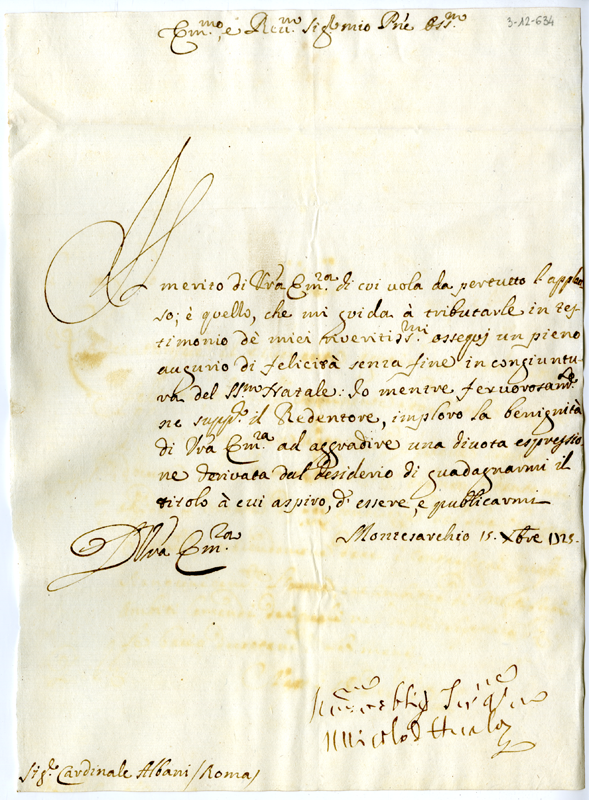 3-12-634
Em.mo, e Rev.mo Sig.r mio P.ne Oss.mo
Al
merito di Vra Em.za di cui vola da pertutto l'applau
so; è quello, che mi guida à tributarle in tes
timonio dè miei riveritiss.mi ossequj un pieno
augurio di felicità senza fine in congiuntu
ra del SS.mo Natale: Io mentre fervorosam.te
ne supp.co il Redentore, imploro la benignità
di Vra Em.za ad aggradire una divota espressio
ne derivata dal desiderio di guadagnarmi il
titolo à cui aspiro, d'essere, e publicarmi
D Vra Em.za
Montesarchio 15. Xbre 1725.
Sig.r Cardinale Albani /Roma/